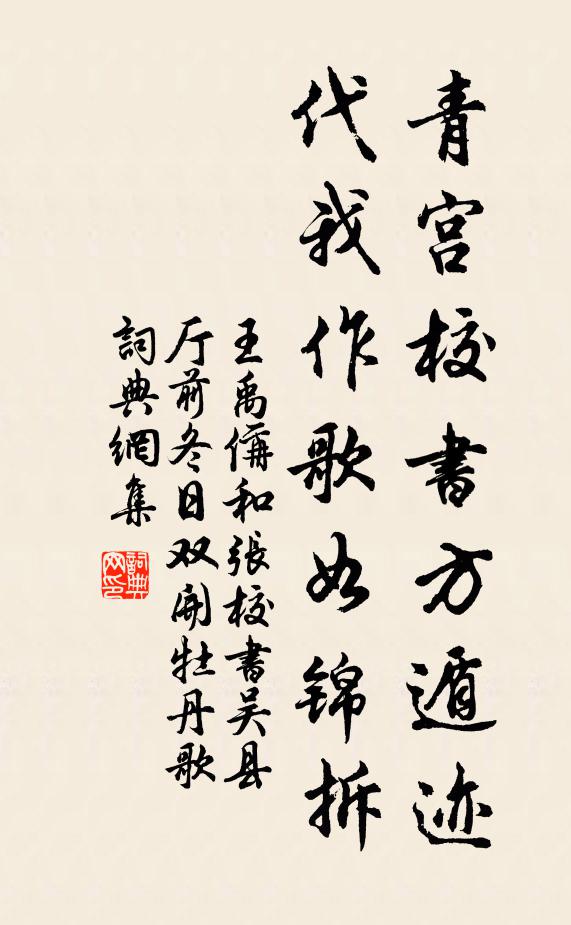 青宫校書方遁迹
代我作歌如锦拆
王禹偁和張校書吴县
厅前冬日双開牡丹歌
詞典網集
詞典网印